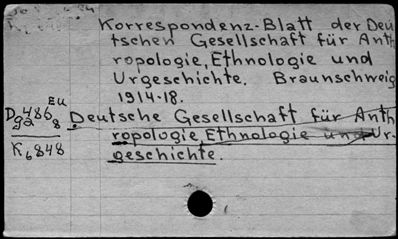 Korrespondenz-Blatt der Deu
tschen Gesellschaft für Anth
ropologie, Ethnologie und
Urgeschichte. Braunschweig
1914-18.
EU
Dg486
928
Deutsche Gesellschaft für Anth
ropologie Ethnologie und Ur-
geschichte.
K6848